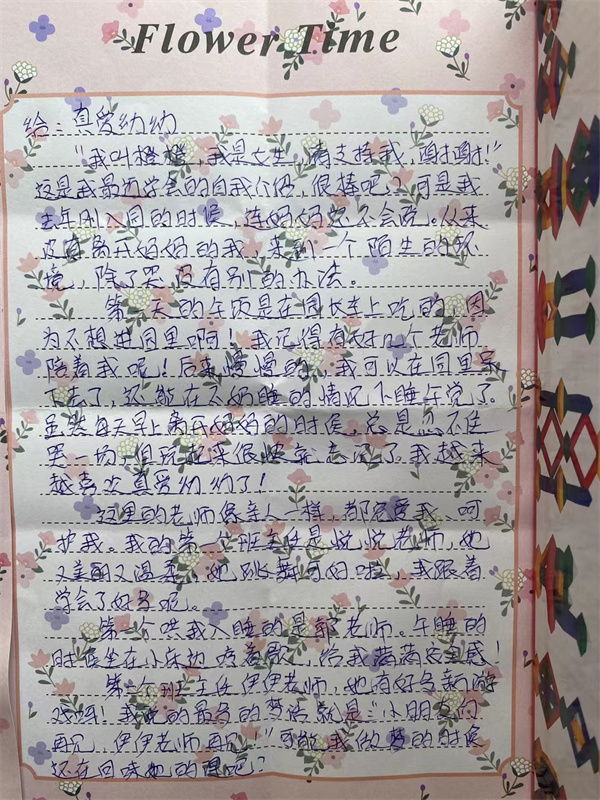 Flower Time
给：真爱幼幼
"我叫橙橙，我是女生，请支持我，谢谢！"
这是我最近学会的自我介绍，很棒吧？可是我
去年刚入园的时候，连妈妈都不会说。从来
没有离开妈妈的我，来到一个陌生的环
境，除了哭没有别的办法。
第一天的午饭是在园长车上吃的，因
为不想进园里啊！我记得有好几个老师
陪着我呢！后来慢慢的，我可以在园里呆
下去了，还能在不奶睡的情况下睡午觉了。
虽然每天早上离开妈妈的时候，总是忍不住
哭一场，但玩起来很快就忘记了。我越来
越喜欢真爱幼幼了！
这里的老师像亲人一样，都宠爱我、呵
护我。我的第一个班主任是悦悦老师，她
又美丽又温柔，她跳舞可好啦，我跟着
学会了好多呢。
第一个哄我入睡的是郭老师。午睡的
时候坐在小床边哼着歌，给我满满安全感！
第二个班主任伊伊老师，她有好多新游
戏啊！我说的最多的梦话就是："小朋友们
再见，伊伊老师再见！"可能我做梦的时候
还在回味她的课吧？